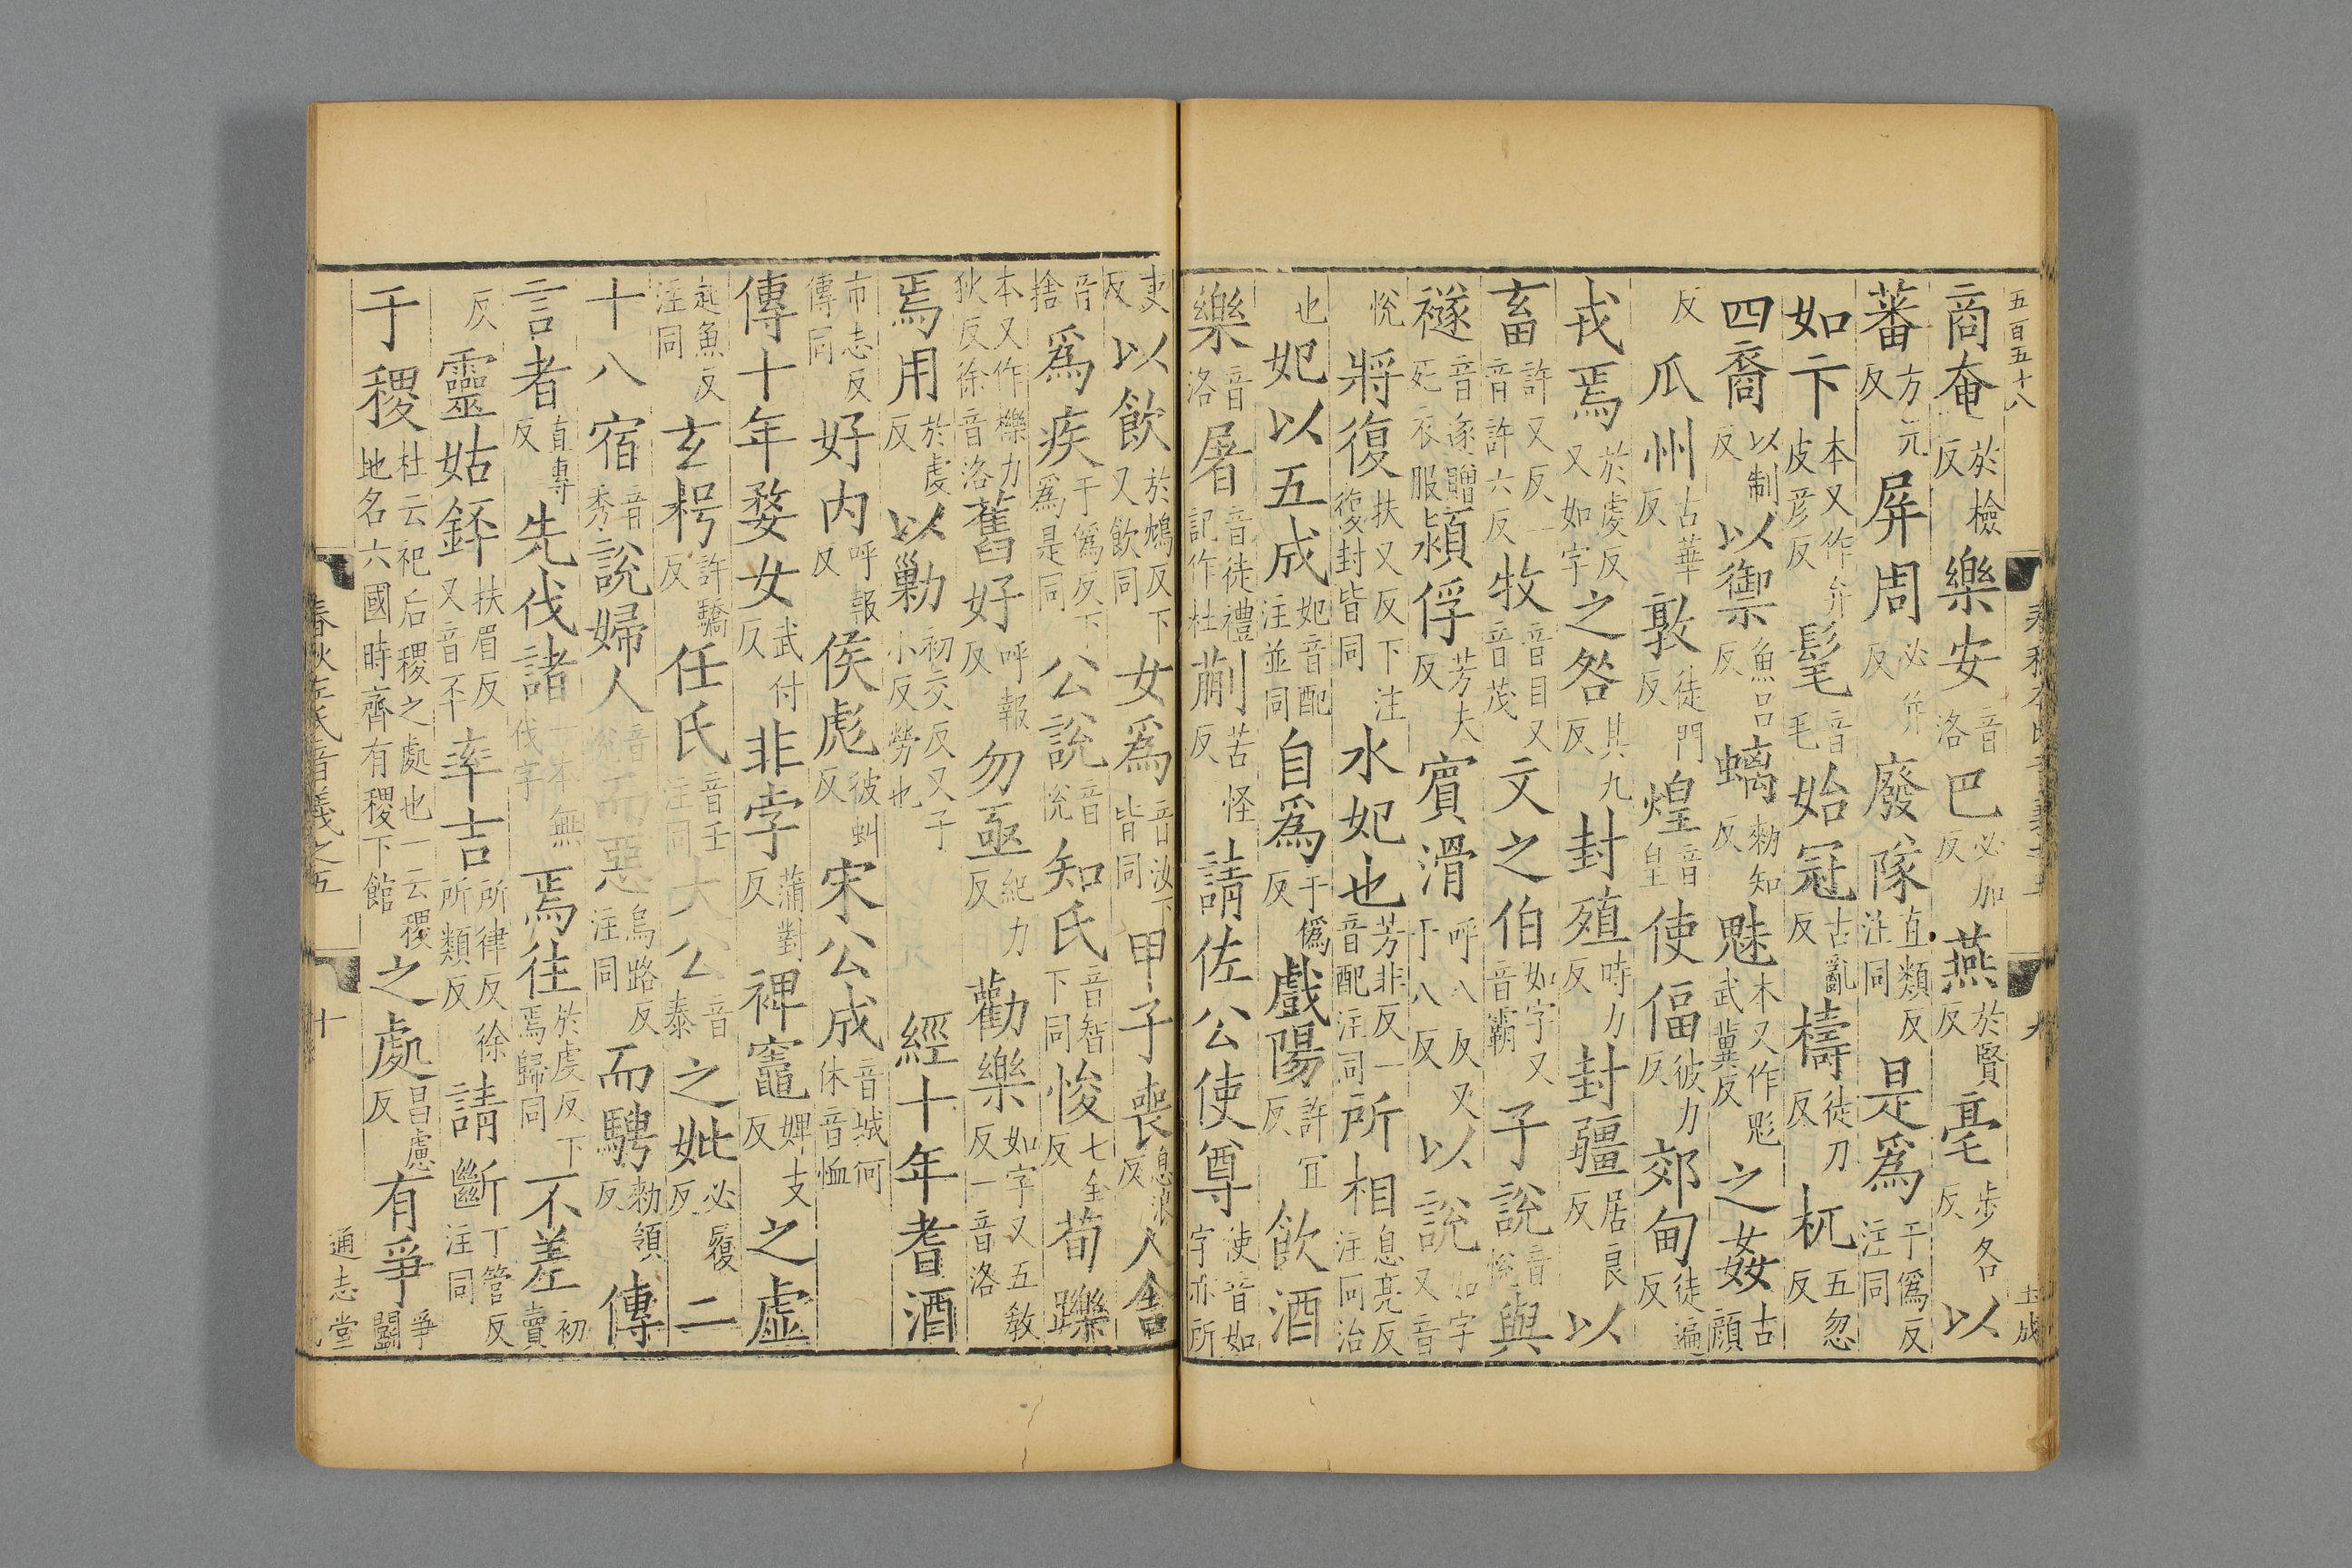 五百五十八
商奄於檢反樂安音洛巴必加反燕於賢反亳步各反以
蕃方元反屏周必幷反廢隊直類反注同是爲于僞反注同
如卞本又作弁皮彥反髦音毛始冠古亂反檮徒刀反杌五忽反
四裔以制反以禦魚呂反螭勑知反魅本又作鬽武冀反之姦古顏
反瓜州古華反敦徒門反煌音皇使偪彼力反郊甸徒遍反
戎焉於虔反又如字之咎其九反封殖時力反封疆居良反以
畜許又反一音許六反牧音目又音茂文之伯如字又音霸子說音悅與
襚音遂贈死衣服潁俘芳夫反賓滑呼八反又于八反以說如字又音
悅將復扶又反下注復封皆同水妃也芳非反一音配注同所相息亮反注同治
也妃以五成妃音配注並同自爲于僞反戲陽許宜反飲酒
樂音洛屠音徒禮記作杜蒯苦怪反請佐公使尊使音如字亦所
吏反以飲於鴆反下又飲同女爲音汝下皆同甲子喪息浪反人舍
音捨爲疾于僞反下爲是同公說音悅知氏音智下同悛七全反荀躒
本又作櫟力狄反徐音洛舊好呼報反勿亟紀力反勸樂如字又五教反一音洛
焉用於虔反以勦初交反又子小反勞也經十年耆酒
市志反傳同好內呼報反侯彪彼虯反宋公成音城何休音恤
傳十年婺女武付反非孛蒲對反裨竈婢支反之虛
起魚反注同玄枵許驕反任氏音壬注同大公音泰之妣必履反二
十八宿音秀說婦人音悅而惡烏路反注同而騁勑領反傳
言者直專反先伐諸一本無伐字焉往於虔反下焉歸同不差初賣
反靈姑銔扶眉反又音丕率吉所律反徐所類反請斷丁管反注同
于稷杜云祀后稷之處也一云稷地名六國時齊有稷下館之處昌慮反有爭爭鬬
春秋左氏音義之五
十
通志堂